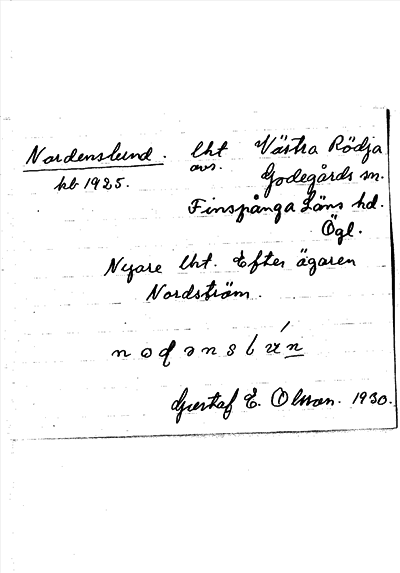 Nordenslund. lht Västra Rödja
avs. Godegårds sn.
kb 1925. Finspånga Läns hd.
Ögl.
Nyare lht. Efter ägaren
Nordström.
Gustaf E. Olsson. 1930.